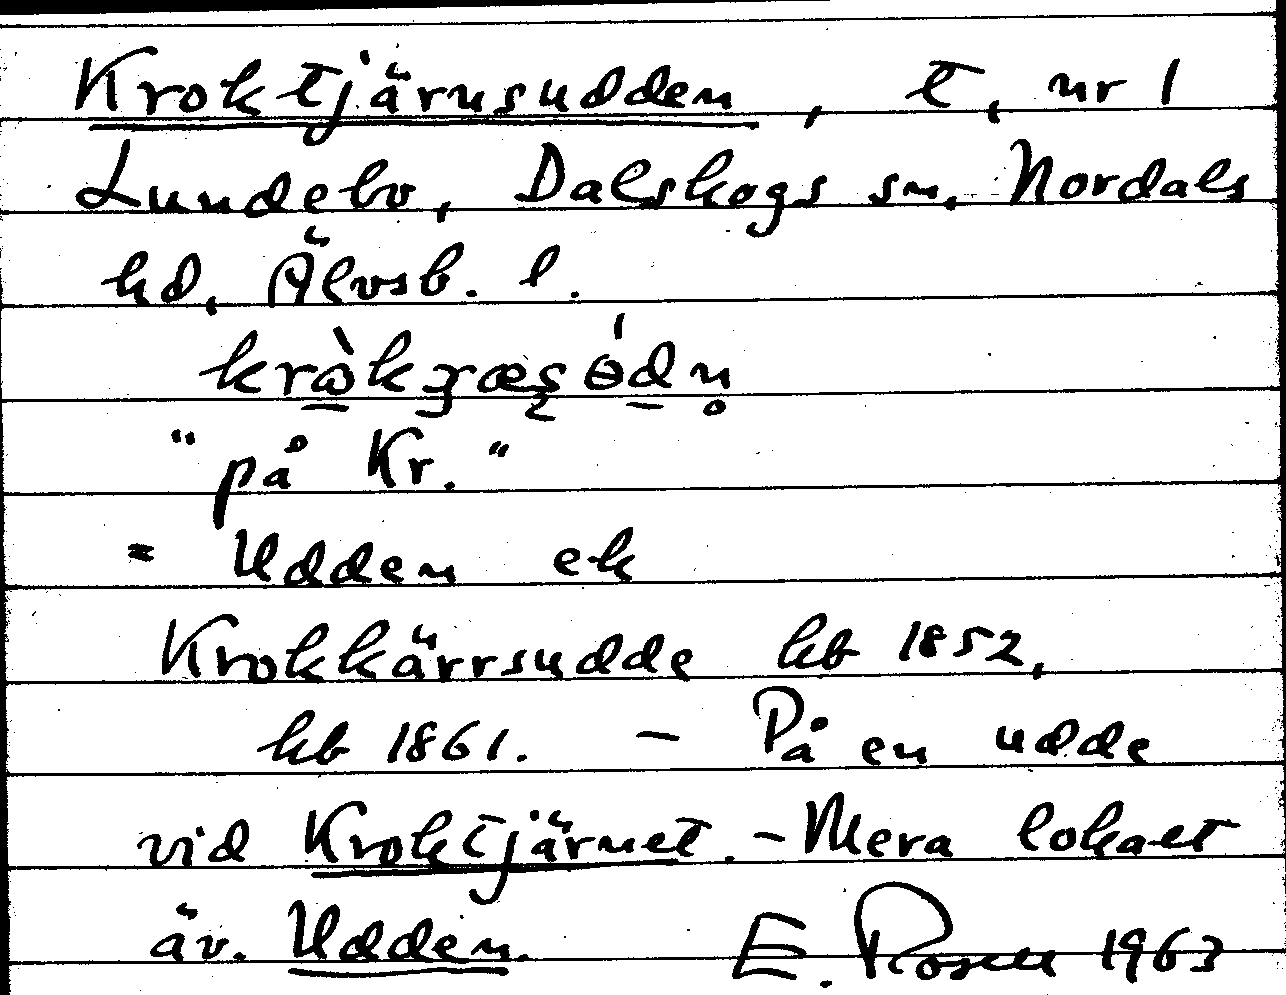 Kroktjärnsudden, t, nr 1
Lundebo, Dalskogs sn, Nordals
hd, Älvsb. l.
"på Kr."
= Udden ek
Krokkärrsudde hb 1852,
hb 1861. - På en udde
vid Kroktjärnet. - Mera lokalt
äv. Udden. E. Rosen 1963